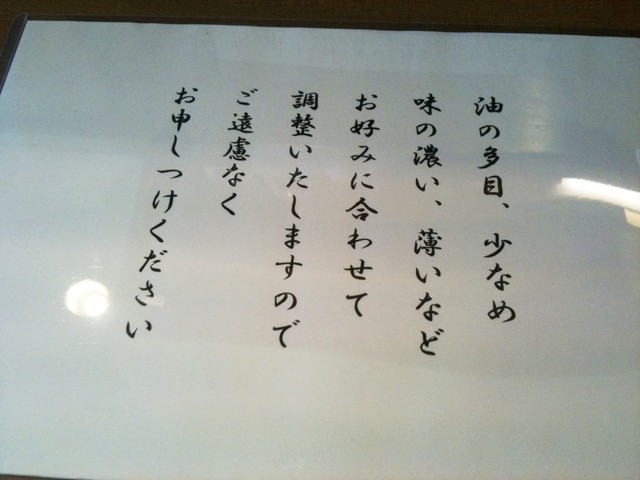 油の多目、少なめ
味の濃い、薄いなど
お好みに合わせて
調整いたしますので
ご遠慮なく
お申しつけください